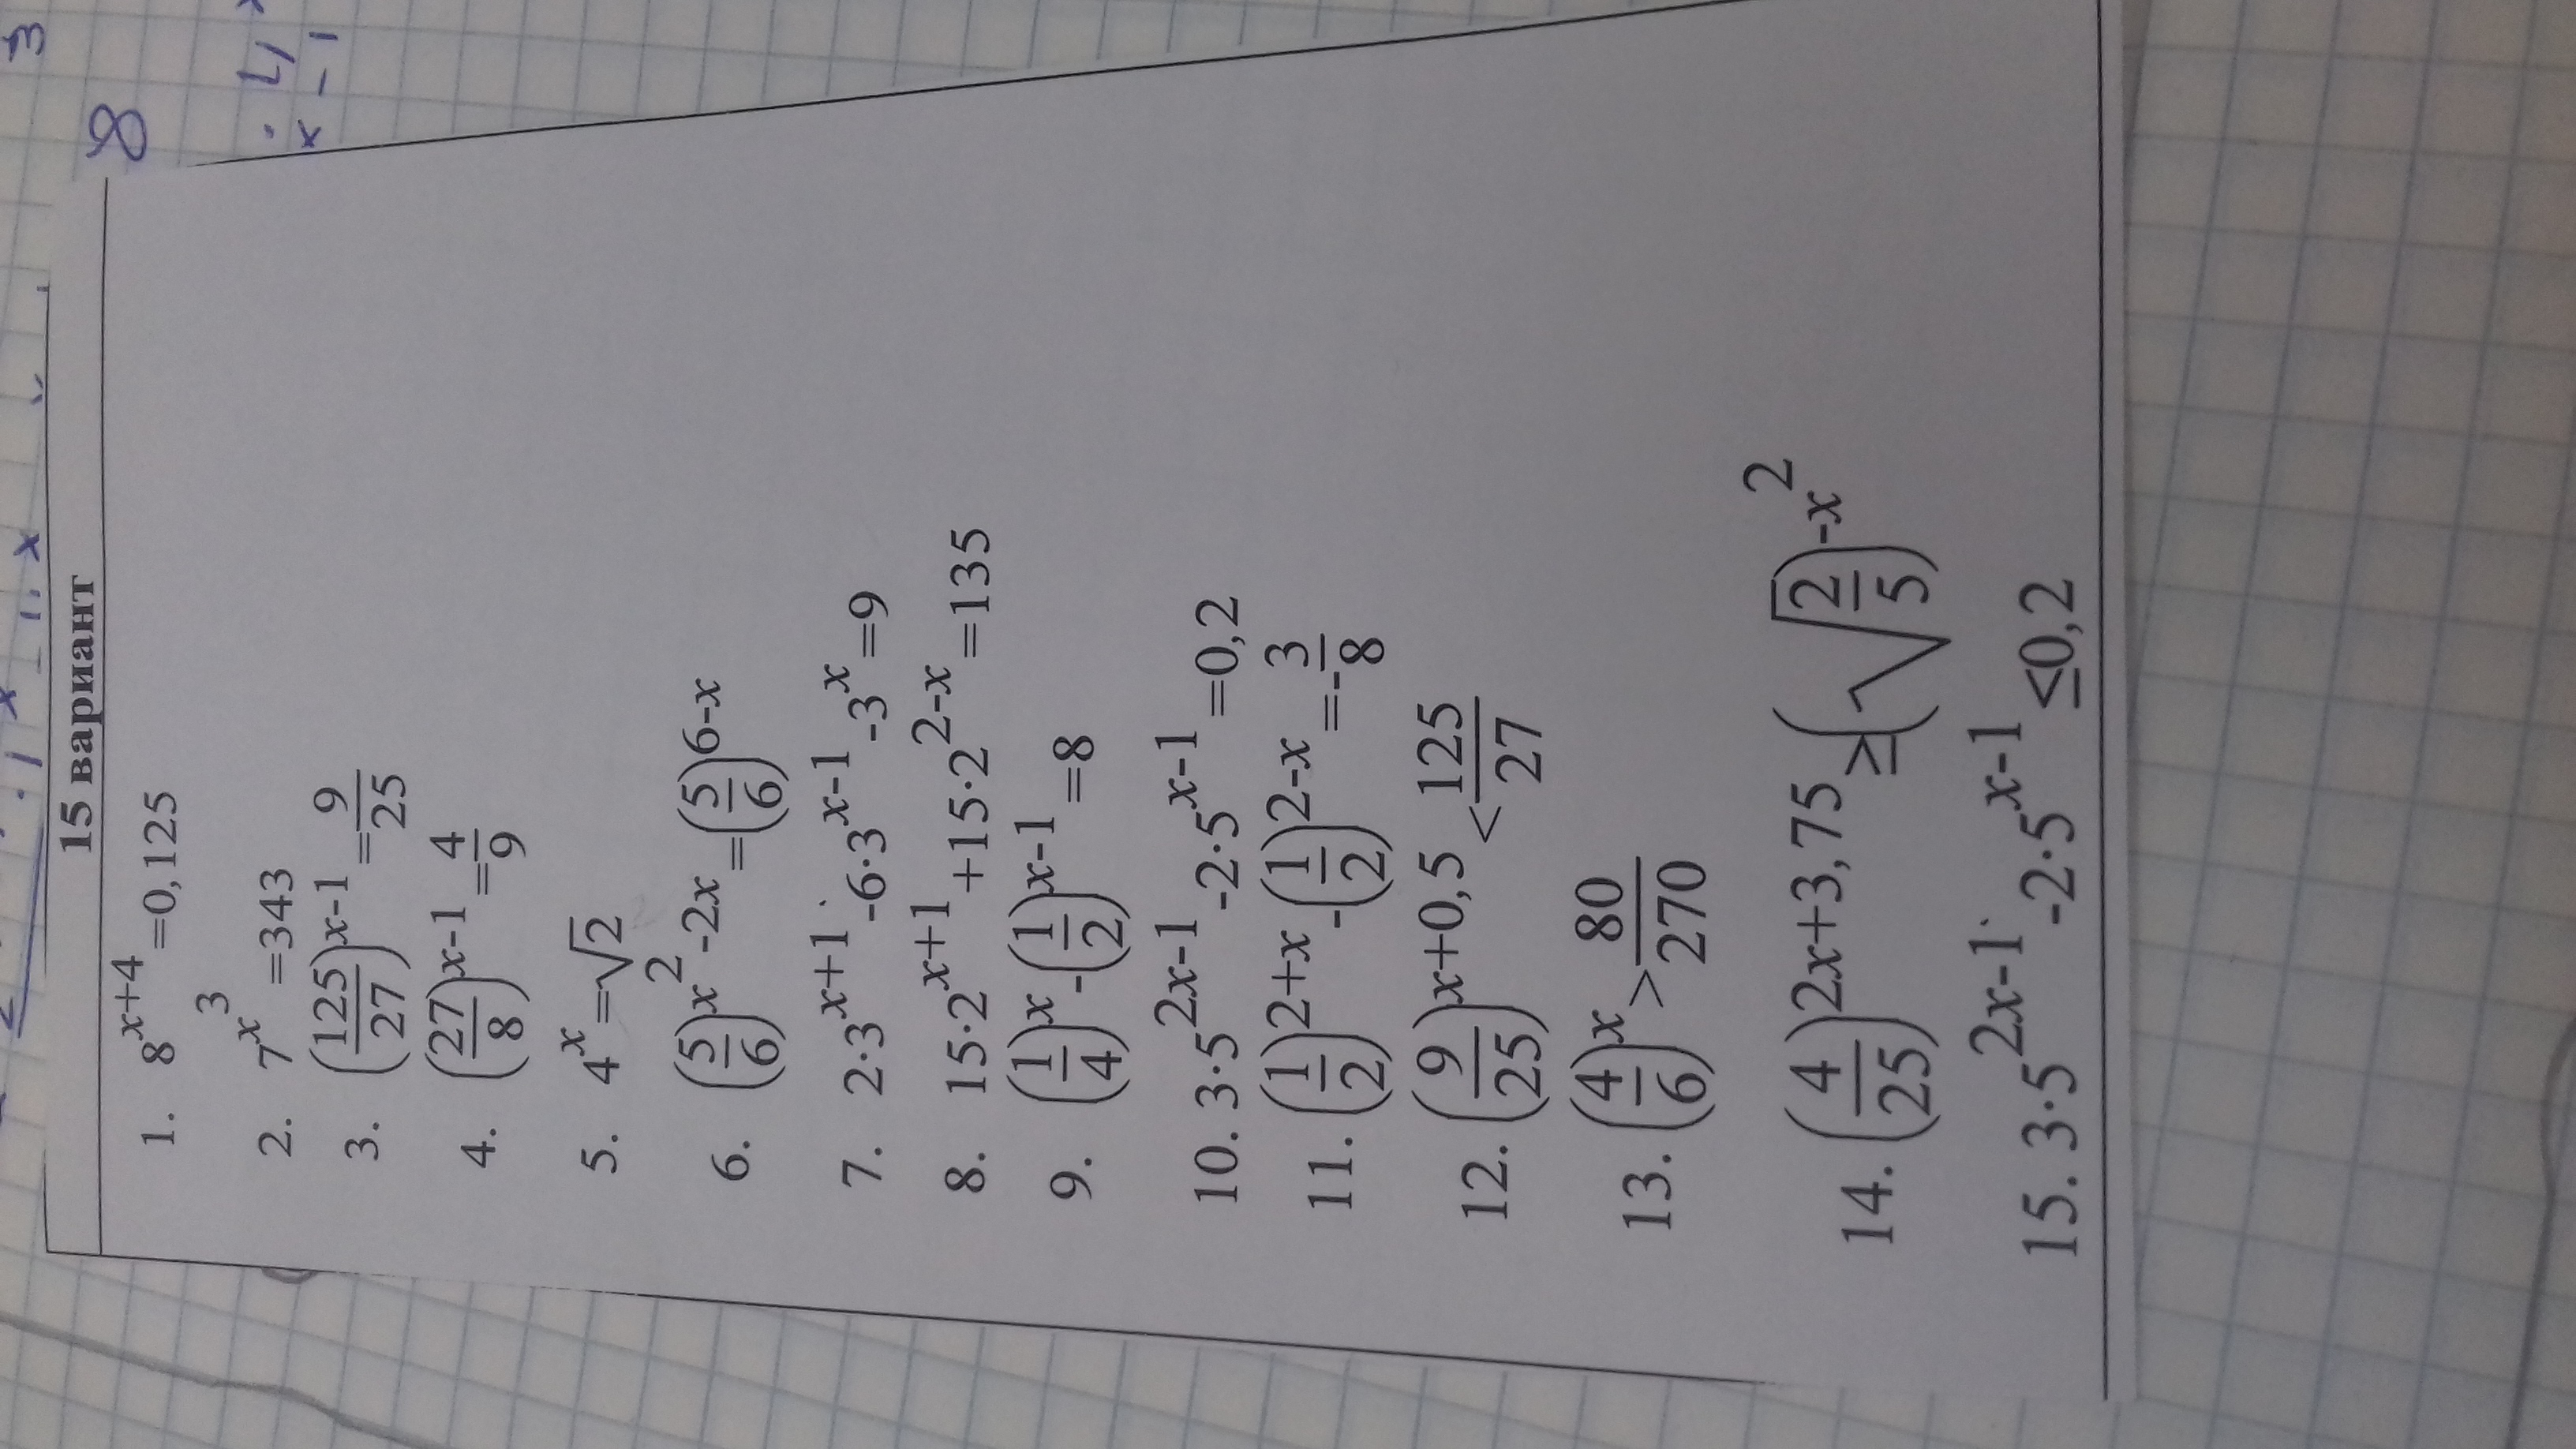 15 вариант
1. 8^{x+4}=0,125
2. 7^{x^3}=343
3. (125/27)^{x-1}=9/25
4. (27/8)^{x-1}=4/9
5. 4^x=√2
6. (5/6)^{x^2-2x}=(5/6)^{6-x}
7. 2·3^{x+1}-6·3^{x-1}-3^x=9
8. 15·2^{x+1}+15·2^{2-x}=135
9. (1/4)^x-(1/2)^{x-1}=8
10. 3·5^{2x-1}-2·5^{x-1}=0,2
11. (1/2)^{2+x}-(1/2)^{2-x}=-3/8
12. (9/25)^{x+0,5}<125/27
13. (4/6)^x>80/270
14. (4/25)^{2x+3,75}≥(√(2/5))^{-x^2}
15. 3·5^{2x-1}-2·5^{x-1}≤0,2